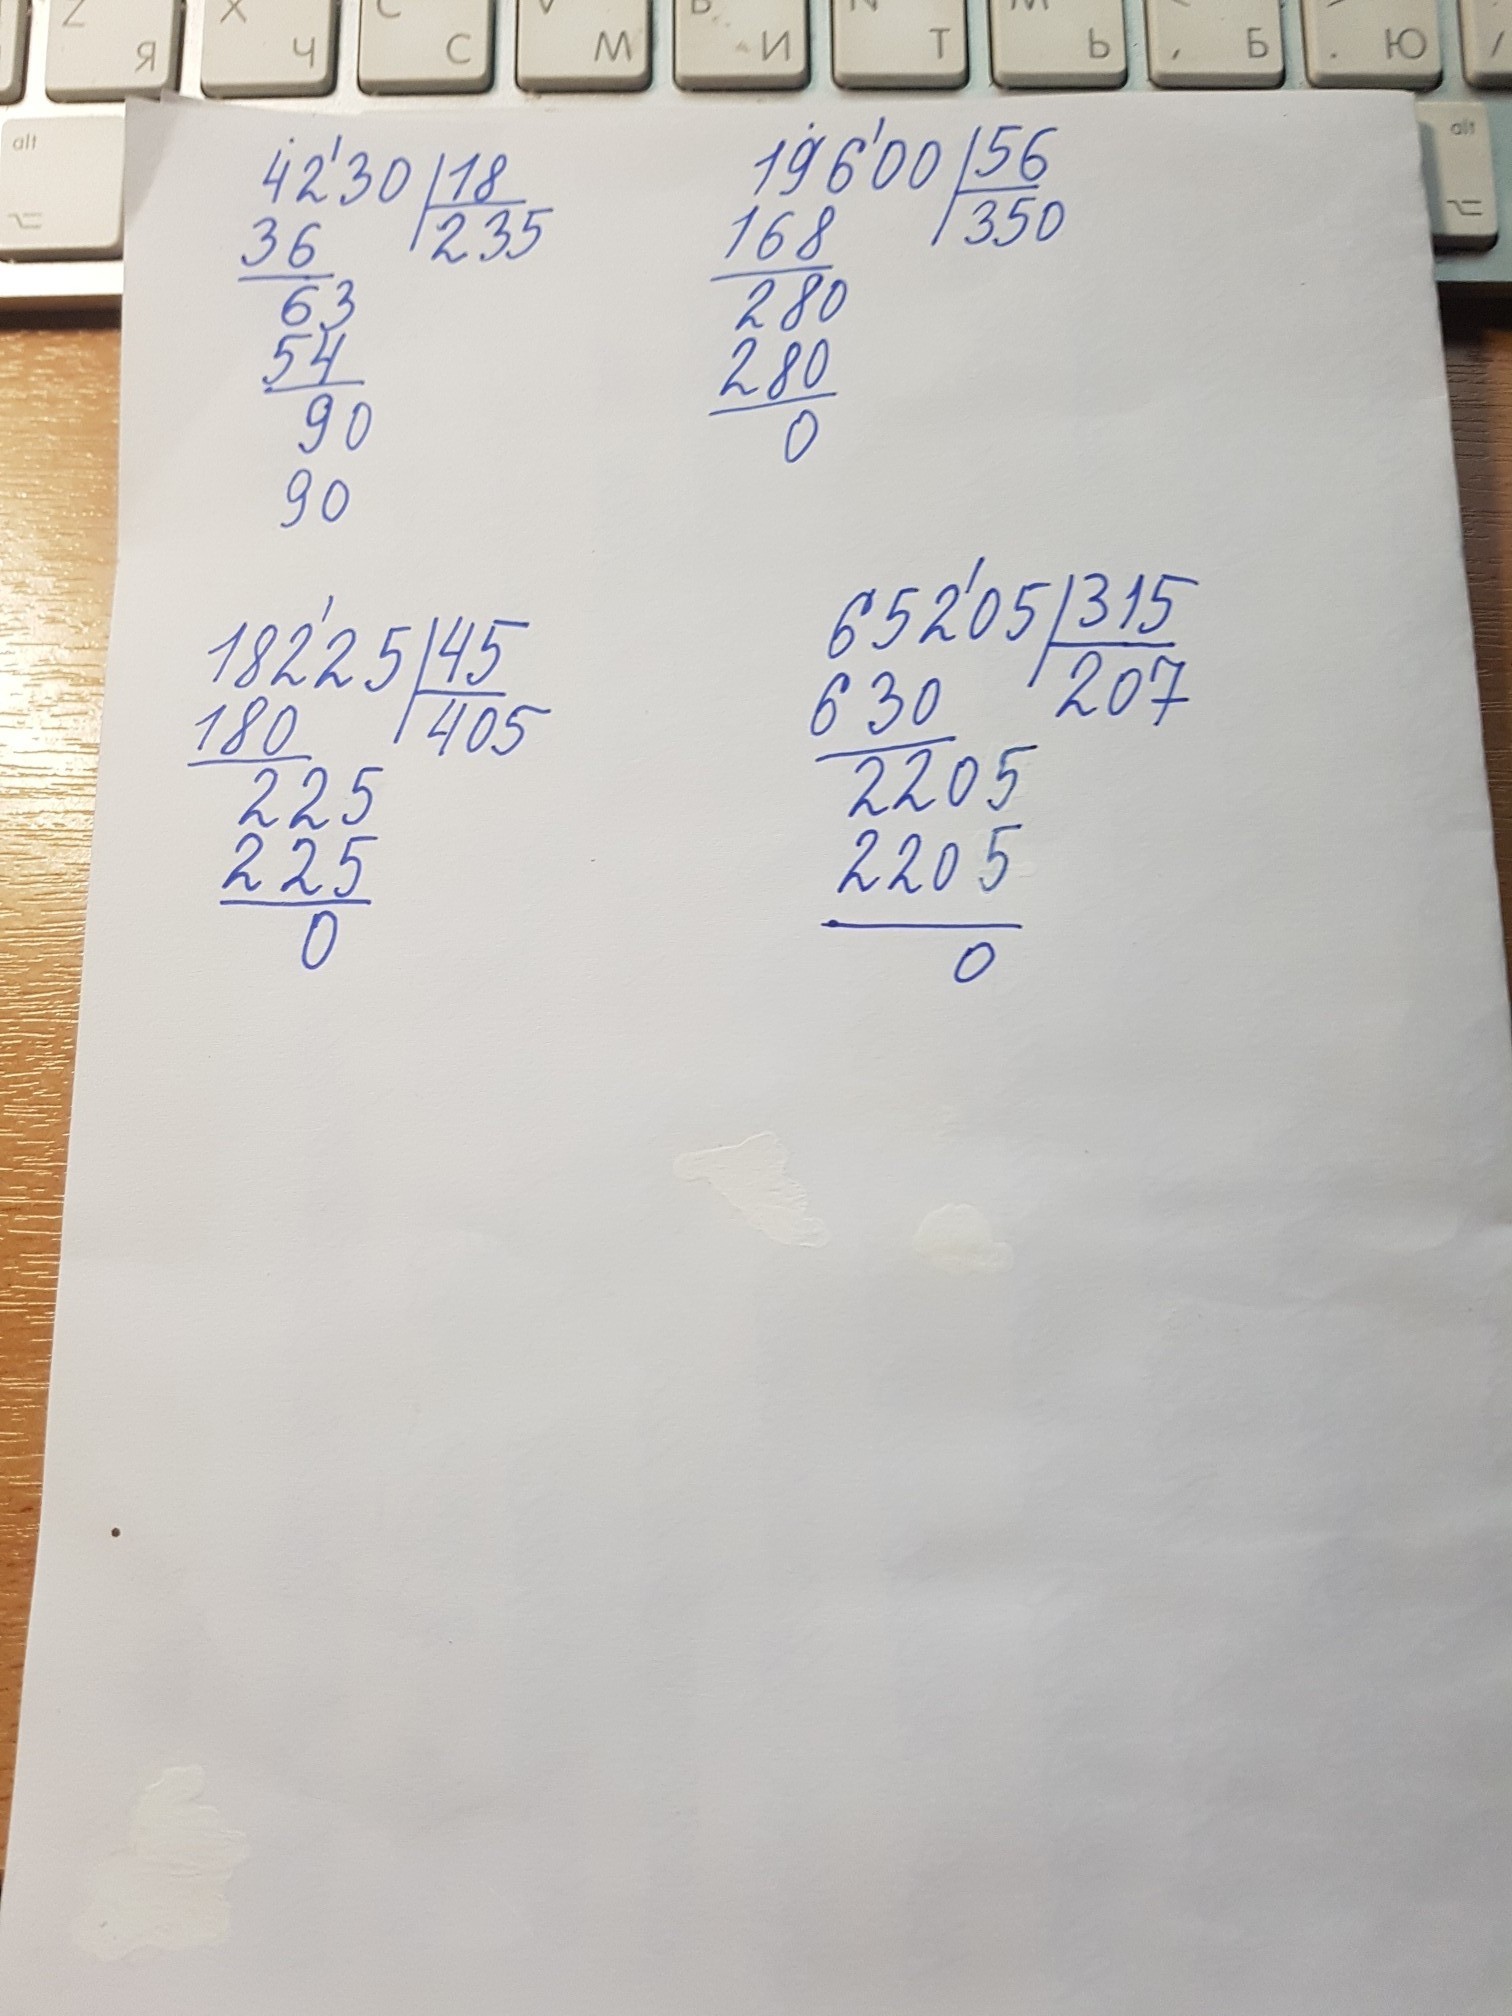 Z Я X Ч C С V М B И N Т M Ь , Б . Ю /
alt
alt
42'30 | 18
36 235
63
54
90
90
196'00 | 56
168 350
280
280
0
182'25 | 45
180 405
225
225
0
652'05 | 315
630 207
2205
2205
0